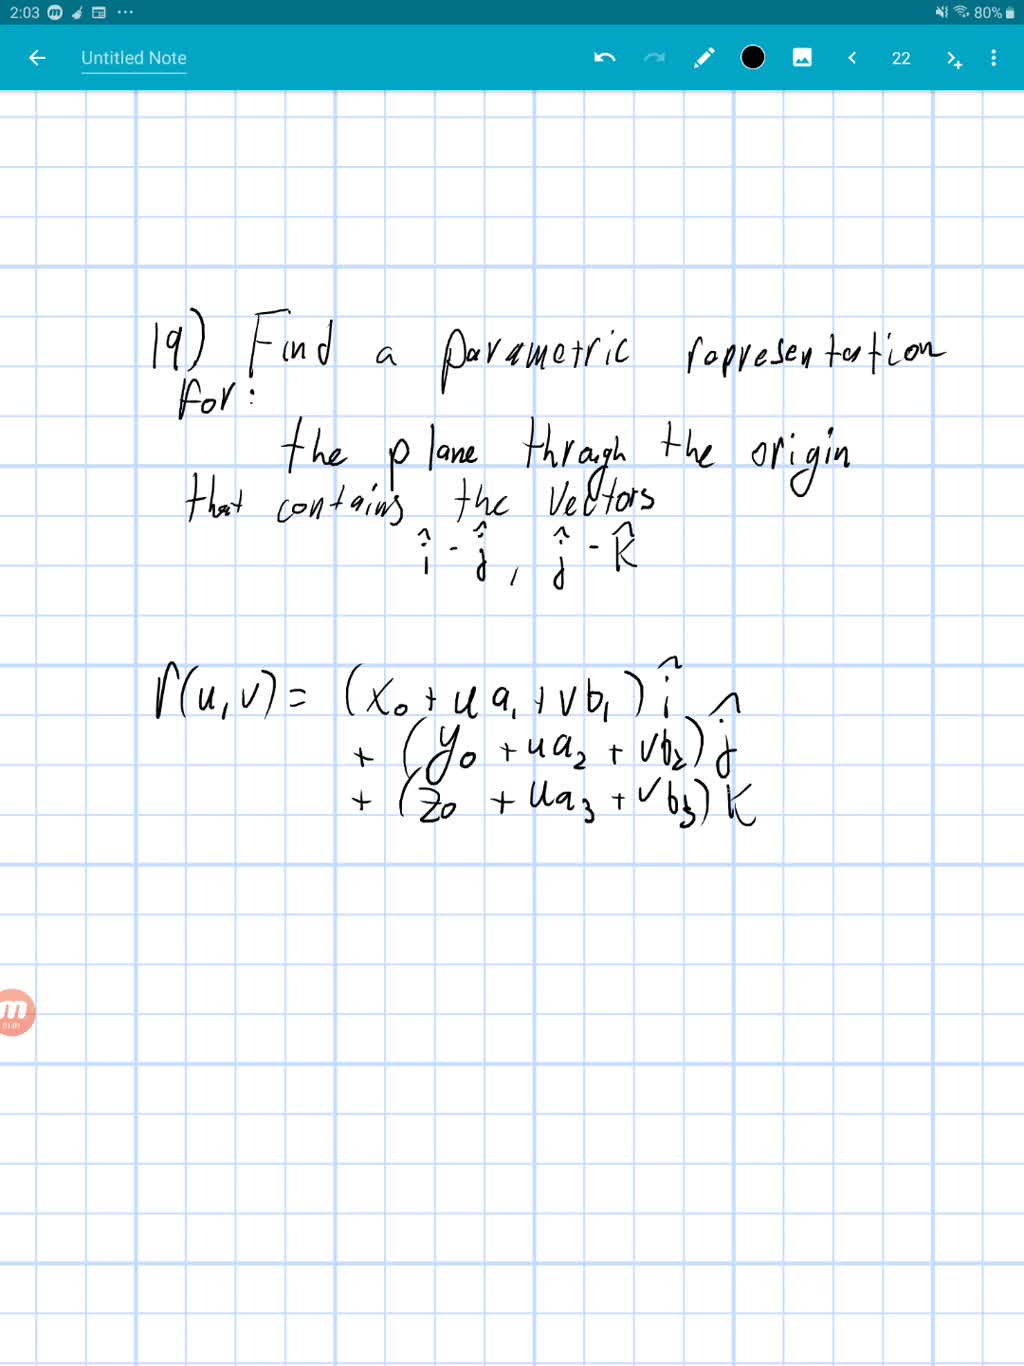 2:03 m ... 80%
Untitled Note 22
19) Find a parametric representation
for:
the plane through the origin
that contains the vectors
î - ĵ, ĵ - k̂
r(u,v) = (x₀ + u a₁ + v b₁) î
+ (y₀ + u a₂ + v b₂) ĵ
+ (z₀ + u a₃ + v b₃) k
m
01:01